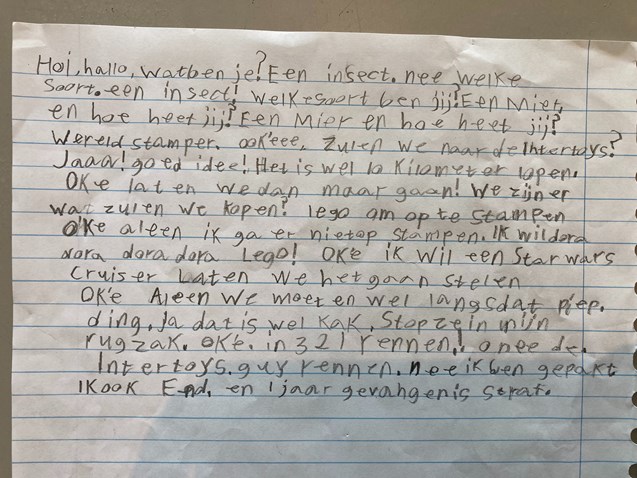 Hoi, hallo, watben je? Een insect. nee welke
Soort. een insect! welkesoort ben jij? Een Mier,
en hoe heet jij? Een Mier en hoe heet jij?
Wereld stamper. ook'eee, Zulen we naar deIntertoys?
Jaaa! goed idee! Het is wel 10 Kilometer lopen.
OKe laten we dan maar gaan! We zijner
wat zulen we kopen? lego om op te stampen
OKe aleen ik ga er nietop stampen. IK wil dora
dora dora dora Lego! OKe ik wil een Star wars
Cruiser Laten we het gaan stelen
OK'e Aleen we moeten wel langsdat piep.
ding, Ja dat is wel kak, Stop ze in mijn
rugzak. OKe. in 3 2 1 rennen! o nee de.
Intertoys. guy rennen. nee ik ben gepakt
IKooK End. en 1 jaar gevangenis straf.